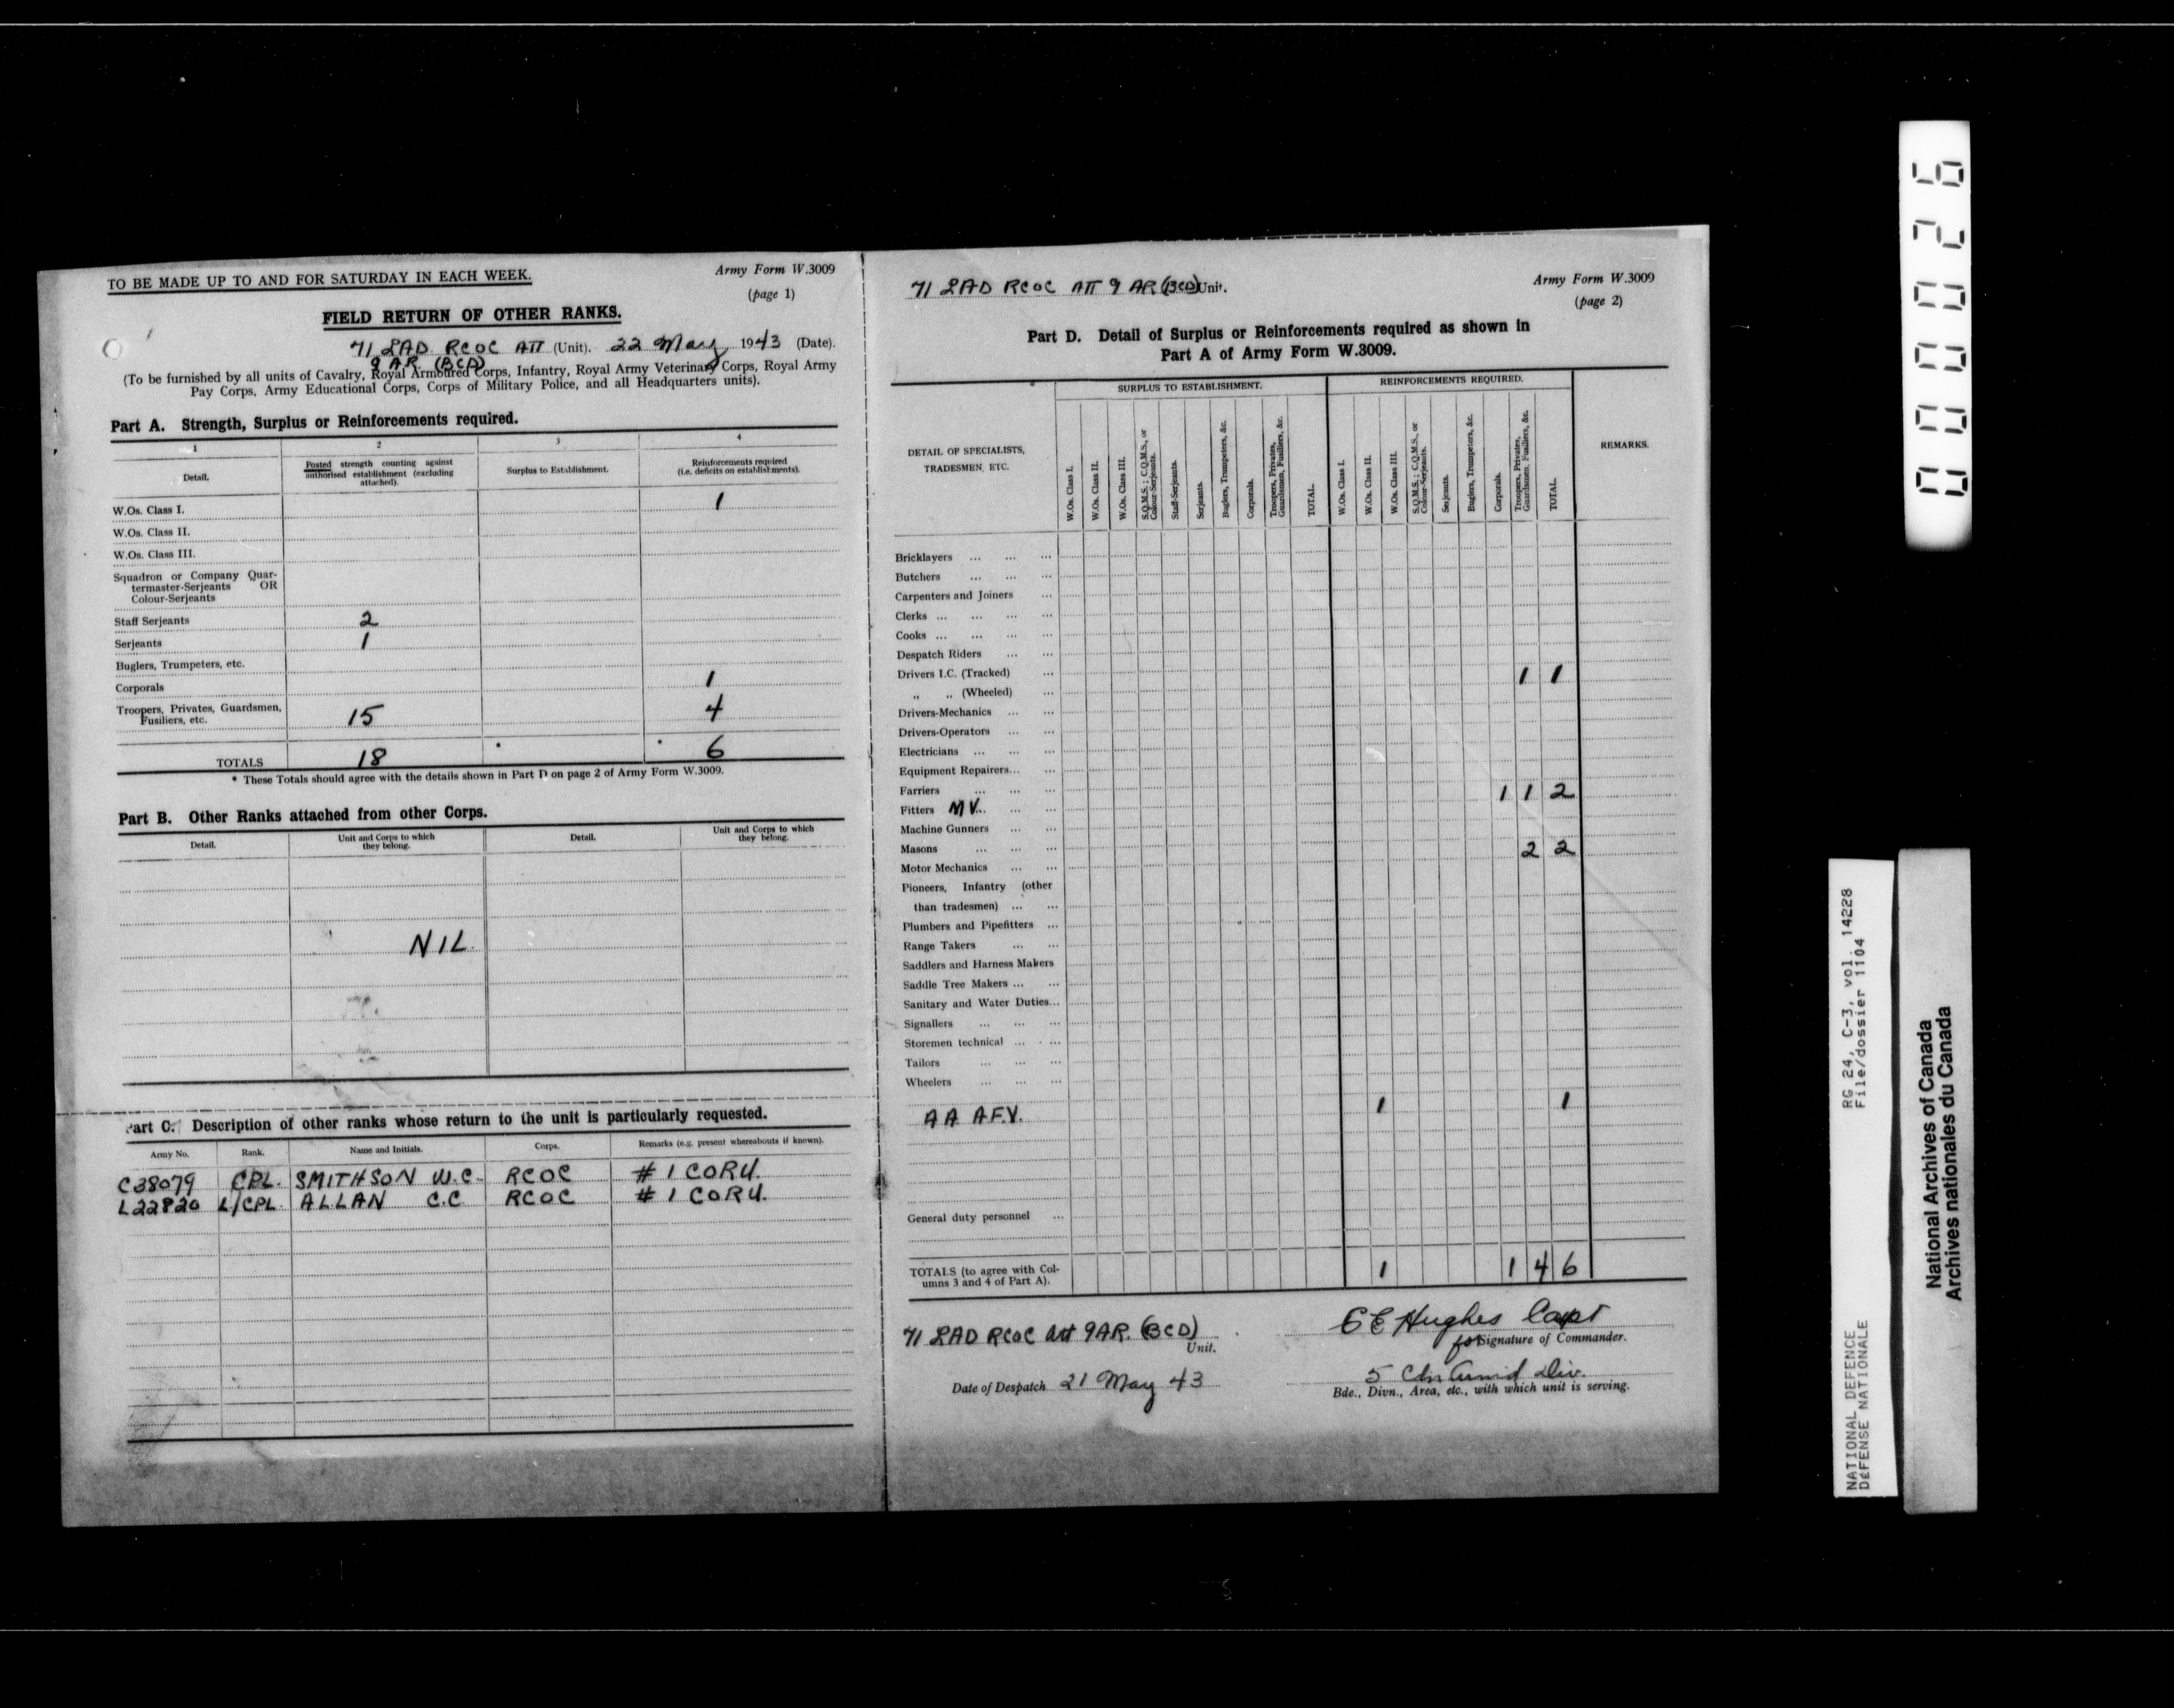 TO BE MADE UP TO AND FOR SATURDAY IN EACH WEEK.
Army Form W.3009
(page 1)
FIELD RETURN OF OTHER RANKS.
71 LAD RCOC ATT (Unit). 22 May 1943 (Date).
9 AR (BCD)
(To be furnished by all units of Cavalry, Royal Armoured Corps, Infantry, Royal Army Veterinary Corps, Royal Army
Pay Corps, Army Educational Corps, Corps of Military Police, and all Headquarters units).
Part A. Strength, Surplus or Reinforcements required.
1 2 3 4
Detail. Posted strength counting against authorised establishment (excluding attached). Surplus to Establishment. Reinforcements required (i.e. deficits on establishments).
W.Os. Class I. 1
W.Os. Class II.
W.Os. Class III.
Squadron or Company Quar-
termaster-Serjeants OR
Colour-Serjeants
Staff Serjeants 2
Serjeants 1
Buglers, Trumpeters, etc.
Corporals 1
Troopers, Privates, Guardsmen,
Fusiliers, etc. 15 4
TOTALS 18 * * 6
* These Totals should agree with the details shown in Part D on page 2 of Army Form W.3009.
Part B. Other Ranks attached from other Corps.
Detail. Unit and Corps to which they belong. Detail. Unit and Corps to which they belong.
NIL
Part C. Description of other ranks whose return to the unit is particularly requested.
Army No. Rank. Name and Initials. Corps. Remarks (e.g. present whereabouts if known).
C38079 CPL. SMITHSON W.C. RCOC # 1 CORU.
L22820 L/CPL. ALLAN C.C RCOC # 1 CORU.
71 LAD RCOC ATT 9 AR (BCD) Unit.
Army Form W.3009
(page 2)
Part D. Detail of Surplus or Reinforcements required as shown in
Part A of Army Form W.3009.
DETAIL OF SPECIALISTS,
TRADESMEN, ETC.
SURPLUS TO ESTABLISHMENT.
W.Os. Class I.
W.Os. Class II.
W.Os. Class III.
S.Q.M.S.; C.Q.M.S., or Colour-Serjeants.
Staff-Serjeants.
Serjeants.
Buglers, Trumpeters, &c.
Corporals.
Troopers, Privates, Guardsmen, Fusiliers, &c.
TOTAL.
REINFORCEMENTS REQUIRED.
W.Os. Class I.
W.Os. Class II.
W.Os. Class III.
S.Q.M.S.; C.Q.M.S., or Colour-Serjeants.
Serjeants.
Buglers, Trumpeters, &c.
Corporals.
Troopers, Privates, Guardsmen, Fusiliers, &c.
TOTAL.
REMARKS.
Bricklayers ... ... ...
Butchers ... ... ...
Carpenters and Joiners ...
Clerks ... ... ... ...
Cooks ... ... ... ...
Despatch Riders ... ...
Drivers I.C. (Tracked) ... 1 1
,, ,, (Wheeled) ...
Drivers-Mechanics ... ...
Drivers-Operators ... ...
Electricians ... ... ...
Equipment Repairers... ...
Farriers ... ... ... 1 1 2
Fitters MV... ... ...
Machine Gunners ... ...
Masons ... ... ... 2 2
Motor Mechanics ... ...
Pioneers, Infantry (other
than tradesmen) ... ...
Plumbers and Pipefitters ...
Range Takers ... ...
Saddlers and Harness Makers
Saddle Tree Makers ... ...
Sanitary and Water Duties...
Signallers ... ... ...
Storemen technical ... ...
Tailors ... ... ...
Wheelers ... ... ...
AA A.F.V. 1 1
General duty personnel ...
TOTALS (to agree with Col-
umns 3 and 4 of Part A). 1 1 4 6
71 LAD RCOC Att 9AR. (BCD)
Unit.
Date of Despatch 21 May 43
G E Hughes Capt
for Signature of Commander.
5 Cdn Armd Div.
Bde., Divn., Area, etc., with which unit is serving.
000026
RG 24, C-3, vol. 14228
File/dossier 1104
NATIONAL DEFENCE
DéFENSE NATIONALE
National Archives of Canada
Archives nationales du Canada